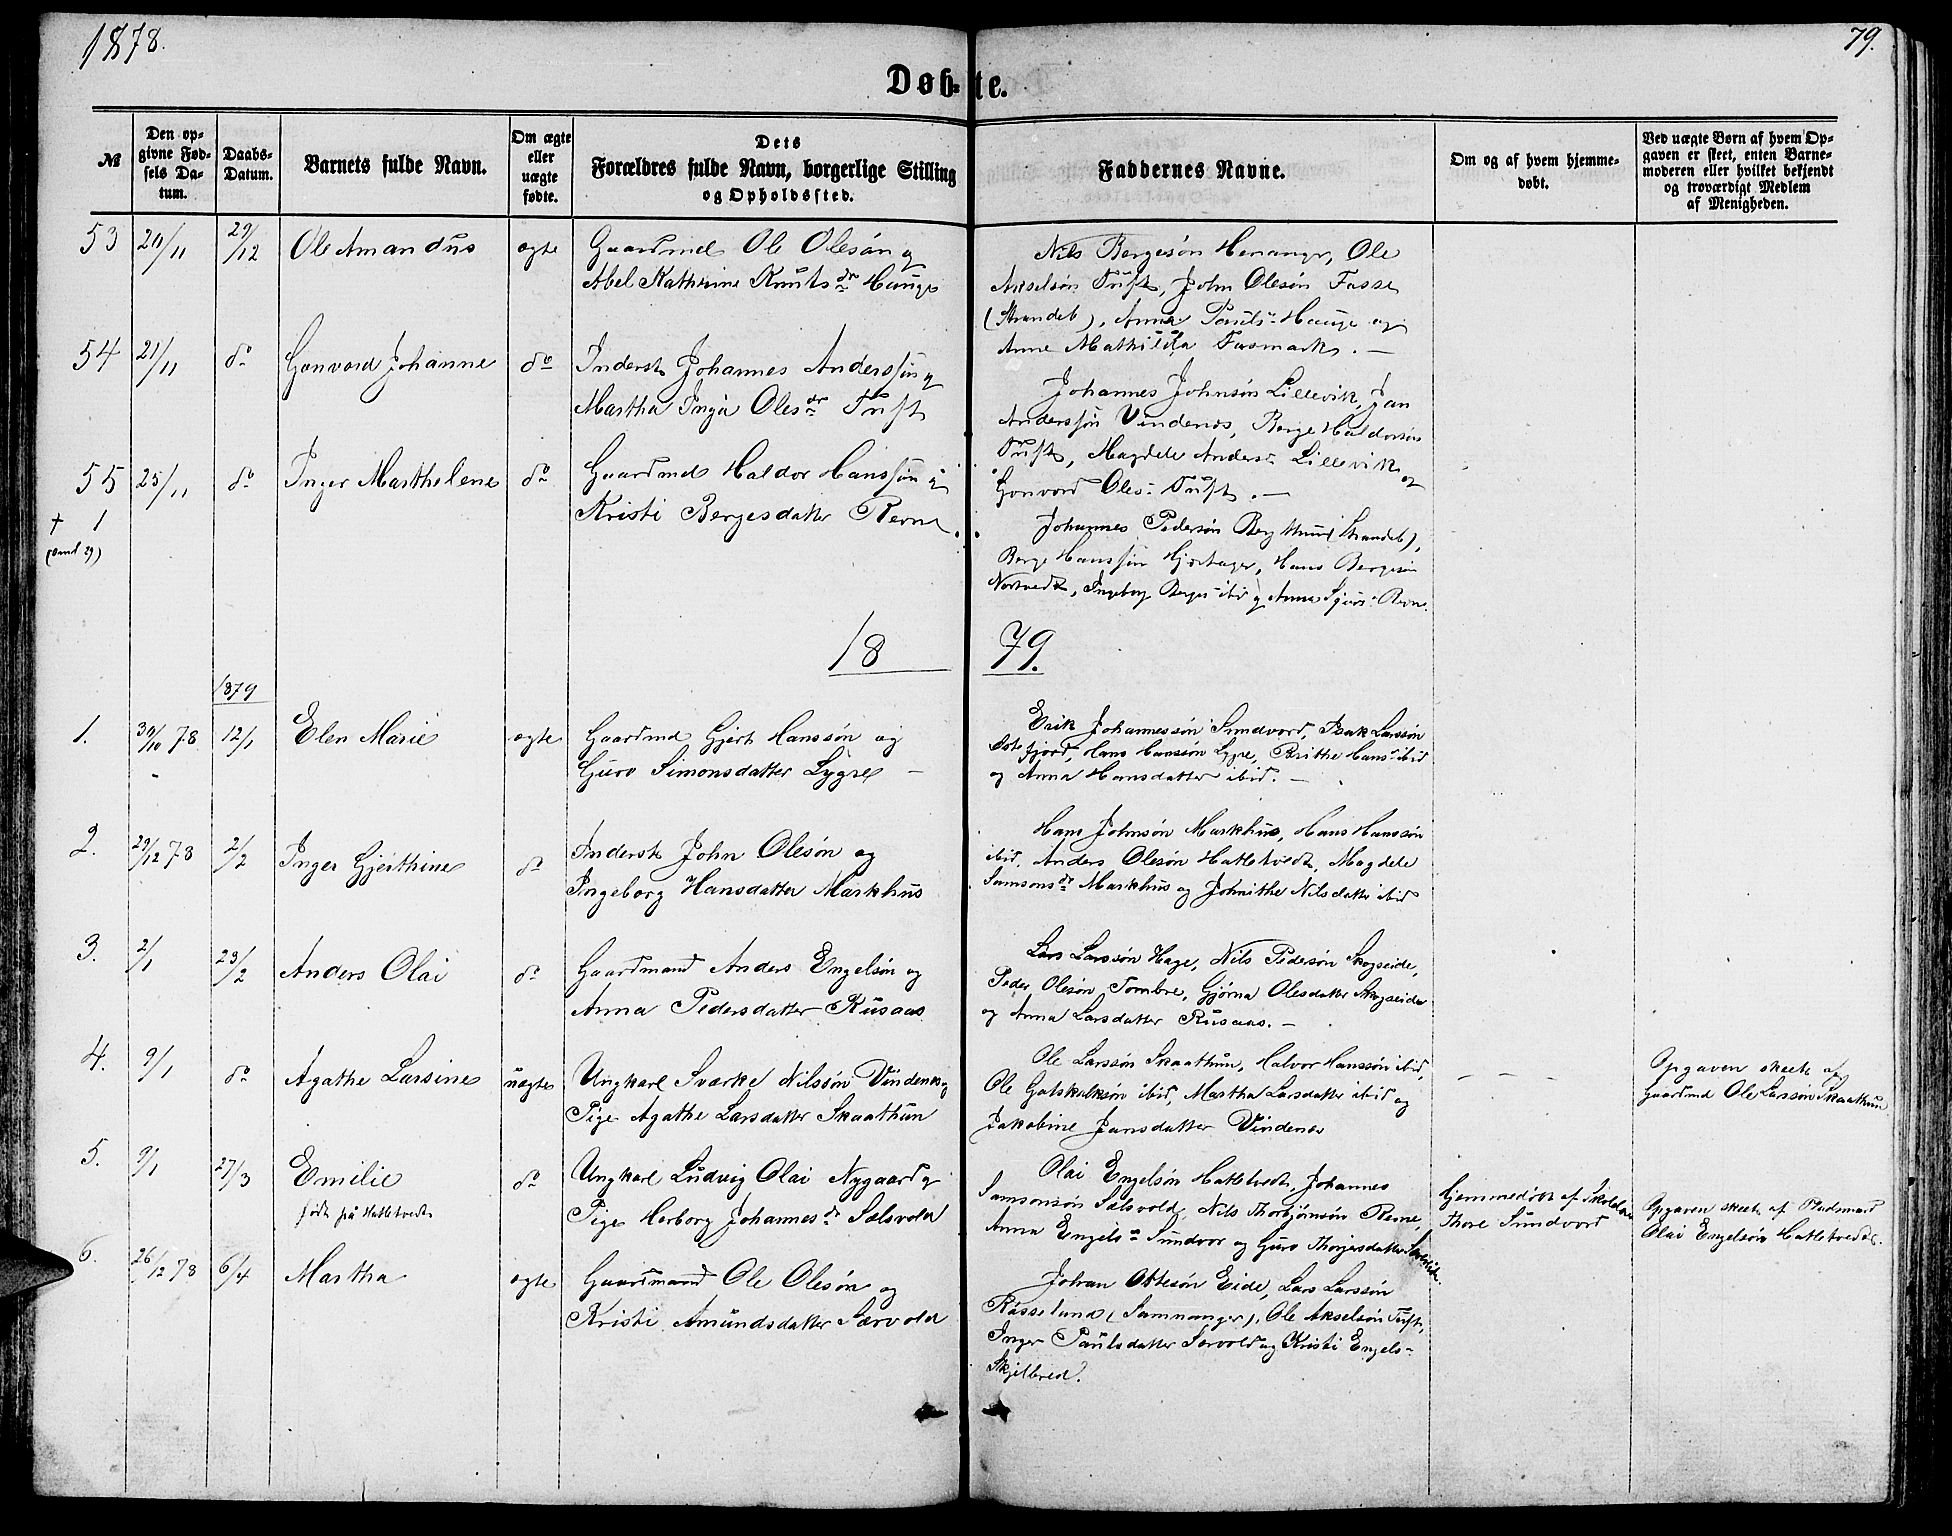 1878.
79.
Døbte.
№
Den opgivne Fødsels Datum.
Daabs-Datum.
Barnets fulde Navn.
Om ægte eller uægte fødte.
Dets Forældres fulde Navn, borgerlige Stilling og Opholdssted.
Faddernes Navne.
Om og af hvem hjemmedøbt.
Ved uægte Børn af hvem Opgaven er skeet, enten Barnemoderen eller hvilket bekjendt og troværdigt Medlem af Menigheden.
53 20/11 29/12 Ole Amandus ægte Gaardmd Ole Olesøn og
Abel Kathrine Knutsdr Hauge
Nils Bergesøn Henanger, Ole
Akselsøn Tufte, John Olesøn Fosse
(Strandeb), Anna Pauls- Hauge og
Anne Mathilda Tasmark. —
54 21/11 do Gonvord Johanne do Inderst Johannes Anderssøn og
Martha Inga Olesdr Tuft
Johannes Johnsøn Lillevik, Jan
Anderssøn Vindenes, Berge Haldorsøn
Tuft, Magdele Anders- Lillevik og
Gonvord Oles- Tuft. —
55 25/11 do Inger Marthelene do Gaardmd Haldor Hanssøn og
† 1 Kristi Bergesdatter Revne.
Johannes Pedersøn Bergthun (Strandeb),
Berge Hanssøn Hjortager, Hans Bergesøn
Nortvedt, Ingeborg Berges- ibid og Anna Sjurs- Revne.
1879.
1879
1. 30/10 78 12/1 Elen Marie ægte Gaardmd Gjert Hanssøn og
Guro Simonsdatter Lygre —
Erik Johannessøn Sundvord, Isak Larssøn
Østefjord, Hans Hanssøn Lygre, Brithe Hans- ibid
og Anna Hansdatter ibid. —
2. 29/12 78 2/2 Inger Gjerthine do Inderst John Olesøn og
Ingeborg Hansdatter Markhus
Hans Johnsøn Markhus, Hans Hanssøn
ibid, Anders Olesøn Hatletvedt, Magdele
Samsonsdr Markhus og Johnithe Nilsdatter ibid
3. 2/1 23/2 Anders Olai do Gaardmand Anders Engelsøn og
Anna Pedersdatter Rusaas
Lars Larssøn Hage, Nils Pedersøn Skogseide,
Peder Olesøn Tombre, Gjørna Olesdatter Skogseide
og Anna Larsdatter Rusaas. —
4. 9/1 do Agathe Larsine uægte Ungkarl Sværke Nilssøn Vindenes og
Pige Agathe Larsdatter Skaathun
Ole Larssøn Skaathun, Halvor Hanssøn ibid,
Ole Gotskalksøn ibid, Martha Larsdatter ibid og
Jakobine Jansdatter Vindenes
— — —
Opgaven skeet af
Gaardmd Ole Larssøn Skaathun
5. 9/1 27/3 Emilie do Ungkarl Ludvig Olai Nygaard og
født på Hatletvedt Pige Herborg Johannesdr Solsvold
Olai Engelsøn Hatletvedt, Johannes
Samsonsøn Solsvold, Nils Thorbjørnsøn Revne,
Anna Engels- Sundvor og Guro Thorgersdatter
Hjemmedøbt af
Thore Sundvord
Opgaven skeet af Pladsmand
Olai Engelsøn Hatletvedt.
6. 26/12 78 6/4 Martha ægte Gaardmand Ole Olesøn og
Kristi Amundsdatter Sørvold
Johan Ottesøn Eide, Lars Larssøn
Røsselund (Samnanger), Ole Akselsøn Tuft,
Inger Paulsdatter Sørvold og Kristi Engels-
Skjelbred.